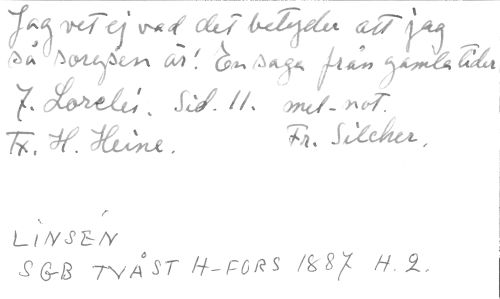 Jag vet ej vad det betyder att jag
så sorgsen är! En saga från gamla tider
7. Lorelei. Sid. 11. mel-not.
Tx. H. Heine. Fr. Silcher.
LINSÉN
SGB TVÅST H-FORS 1887 H. 2.